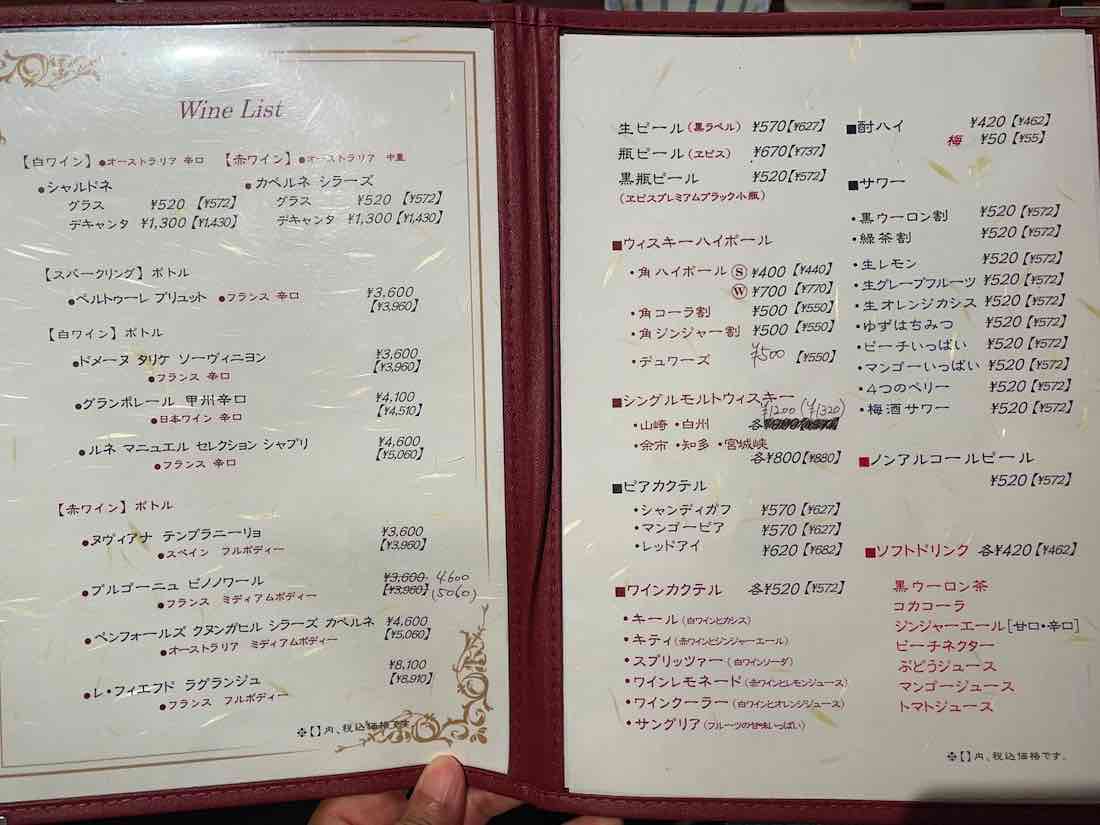 Wine List
【白ワイン】 ●オーストラリア 辛口 【赤ワイン】 ●オーストラリア 中重
●シャルドネ ●カベルネ シラーズ
グラス ¥520 【¥572】 グラス ¥520 【¥572】
デキャンタ ¥1,300【¥1,430】 デキャンタ ¥1,300【¥1,430】
【スパークリング】 ボトル
●ペルトゥーレ ブリュット ●フランス 辛口 ¥3,600
【¥3,960】
【白ワイン】 ボトル
●ドメーヌ タリケ ソーヴィニヨン ¥3,600
●フランス 辛口 【¥3,960】
●グランポレール 甲州辛口 ¥4,100
●日本ワイン 辛口 【¥4,510】
●ルネ マニュエル セレクション シャブリ ¥4,600
●フランス 辛口 【¥5,060】
【赤ワイン】 ボトル
●ヌヴィアナ テンプラニーリョ ¥3,600
●スペイン フルボディー 【¥3,960】
●ブルゴーニュ ピノノワール ¥3,600 4,600
●フランス ミディアムボディー 【¥3,960】 (5060)
●ペンフォールズ クヌンガヒル シラーズ カベルネ ¥4,600
●オーストラリア ミディアムボディー 【¥5,060】
¥8,100
●レ・フィエフド ラグランジュ 【¥8,910】
●フランス フルボディー
※【 】内、税込価格です。
生ビール(黒ラベル) ¥570【¥627】
瓶ビール(ヱビス) ¥670【¥737】
黒瓶ビール ¥520【¥572】
(ヱビスプレミアムブラック小瓶)
■ウィスキーハイボール
・角ハイボール Ⓢ ¥400【¥440】
Ⓦ ¥700【¥770】
・角コーラ割 ¥500【¥550】
・角ジンジャー割 ¥500【¥550】
・デュワーズ ¥500 【¥550】
■シングルモルトウィスキー
¥1200(¥1320)
・山崎 ・白州 各
・余市 ・知多 ・宮城峡
各¥800【¥880】
■ビアカクテル
・シャンディガフ ¥570【¥627】
・マンゴービア ¥570【¥627】
・レッドアイ ¥620【¥682】
■ワインカクテル 各¥520【¥572】
・キール(白ワインとカシス)
・キティ(赤ワインとジンジャーエール)
・スプリッツァー(白ワインソーダ)
・ワインレモネード(赤ワインとレモンジュース)
・ワインクーラー(白ワインとオレンジジュース)
・サングリア(フルーツの甘味いっぱい)
■酎ハイ ¥420【¥462】
梅 ¥50【¥55】
■サワー
・黒ウーロン割 ¥520【¥572】
・緑茶割 ¥520【¥572】
・生レモン ¥520【¥572】
・生グレープフルーツ ¥520【¥572】
・生オレンジカシス ¥520【¥572】
・ゆずはちみつ ¥520【¥572】
・ピーチいっぱい ¥520【¥572】
・マンゴーいっぱい ¥520【¥572】
・4つのベリー ¥520【¥572】
・梅酒サワー ¥520【¥572】
■ノンアルコールビール
¥520【¥572】
■ソフトドリンク 各¥420【¥462】
黒ウーロン茶
コカコーラ
ジンジャーエール[甘口・辛口]
ピーチネクター
ぶどうジュース
マンゴージュース
トマトジュース
※【 】内、税込価格です。